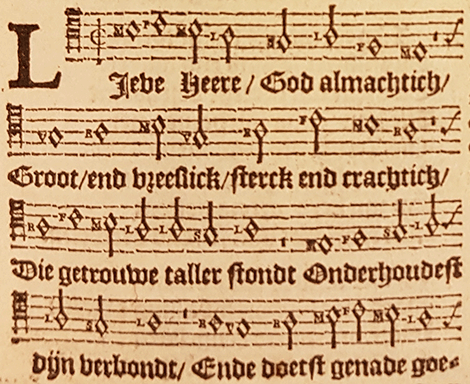 LIeve Heere / God almachtich/
Groot/end vreeslick/sterck end crachtich/
Die getrouwe taller stondt Onderhoudest
dijn verbondt/ Ende doetst genade goe=